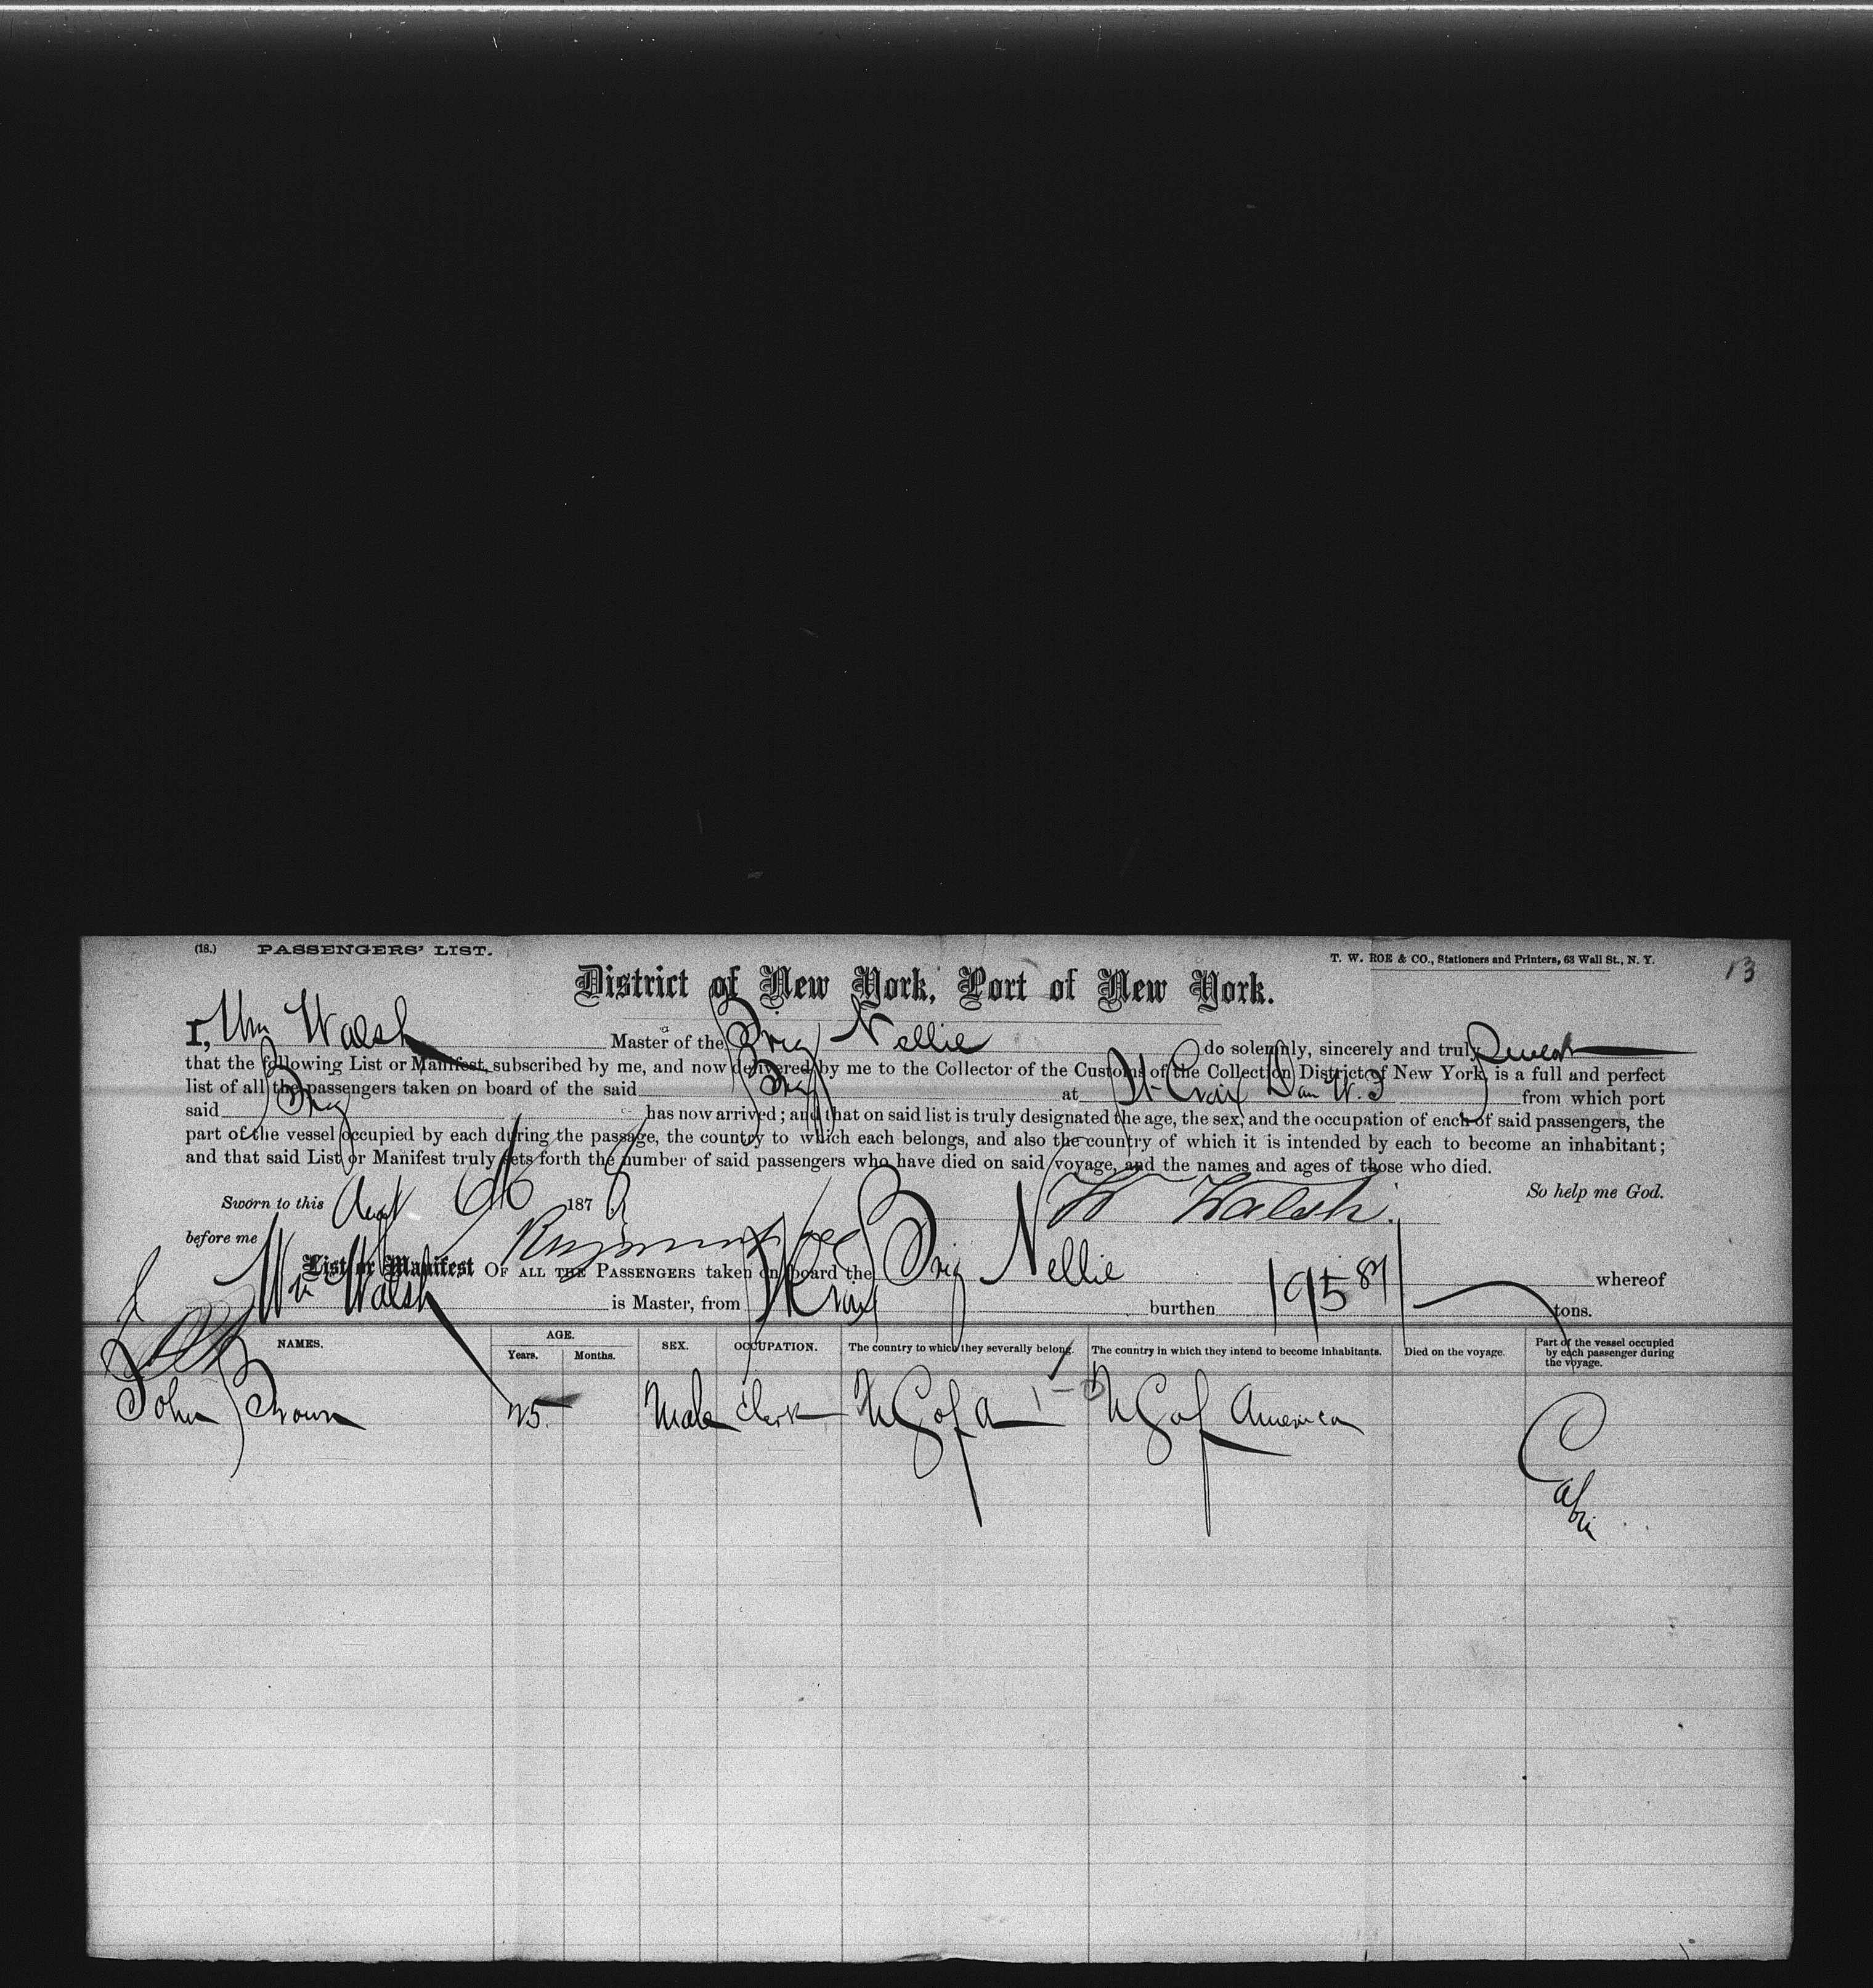 (18.) PASSENGERS' LIST.
T. W. ROE & CO., Stationers and Printers, 63 Wall St., N. Y.
13
District of New York, Port of New York.
I, Wm Walsh Master of the Brig Nellie do solemnly, sincerely and truly Swear
that the following List or Manifest, subscribed by me, and now delivered by me to the Collector of the Customs of the Collection District of New York, is a full and perfect
list of all the passengers taken on board of the said Brig at St Croix Dan W. I from which port
said Brig has now arrived; and that on said list is truly designated the age, the sex, and the occupation of each of said passengers, the
part of the vessel occupied by each during the passage, the country to which each belongs, and also the country of which it is intended by each to become an inhabitant;
and that said List or Manifest truly sets forth the number of said passengers who have died on said voyage, and the names and ages of those who died.
So help me God.
Sworn to this 187
W Walsh.
before me
List or Manifest OF ALL THE PASSENGERS taken on board the Brig Nellie whereof
Wm Walsh is Master, from St Croix burthen 195 87 tons.
NAMES. AGE. Years. Months. SEX. OCCUPATION. The country to which they severally belong. The country in which they intend to become inhabitants. Died on the voyage. Part of the vessel occupied by each passenger during the voyage.
John Brown 25 Male Clerk U S of A U S of America Cabin